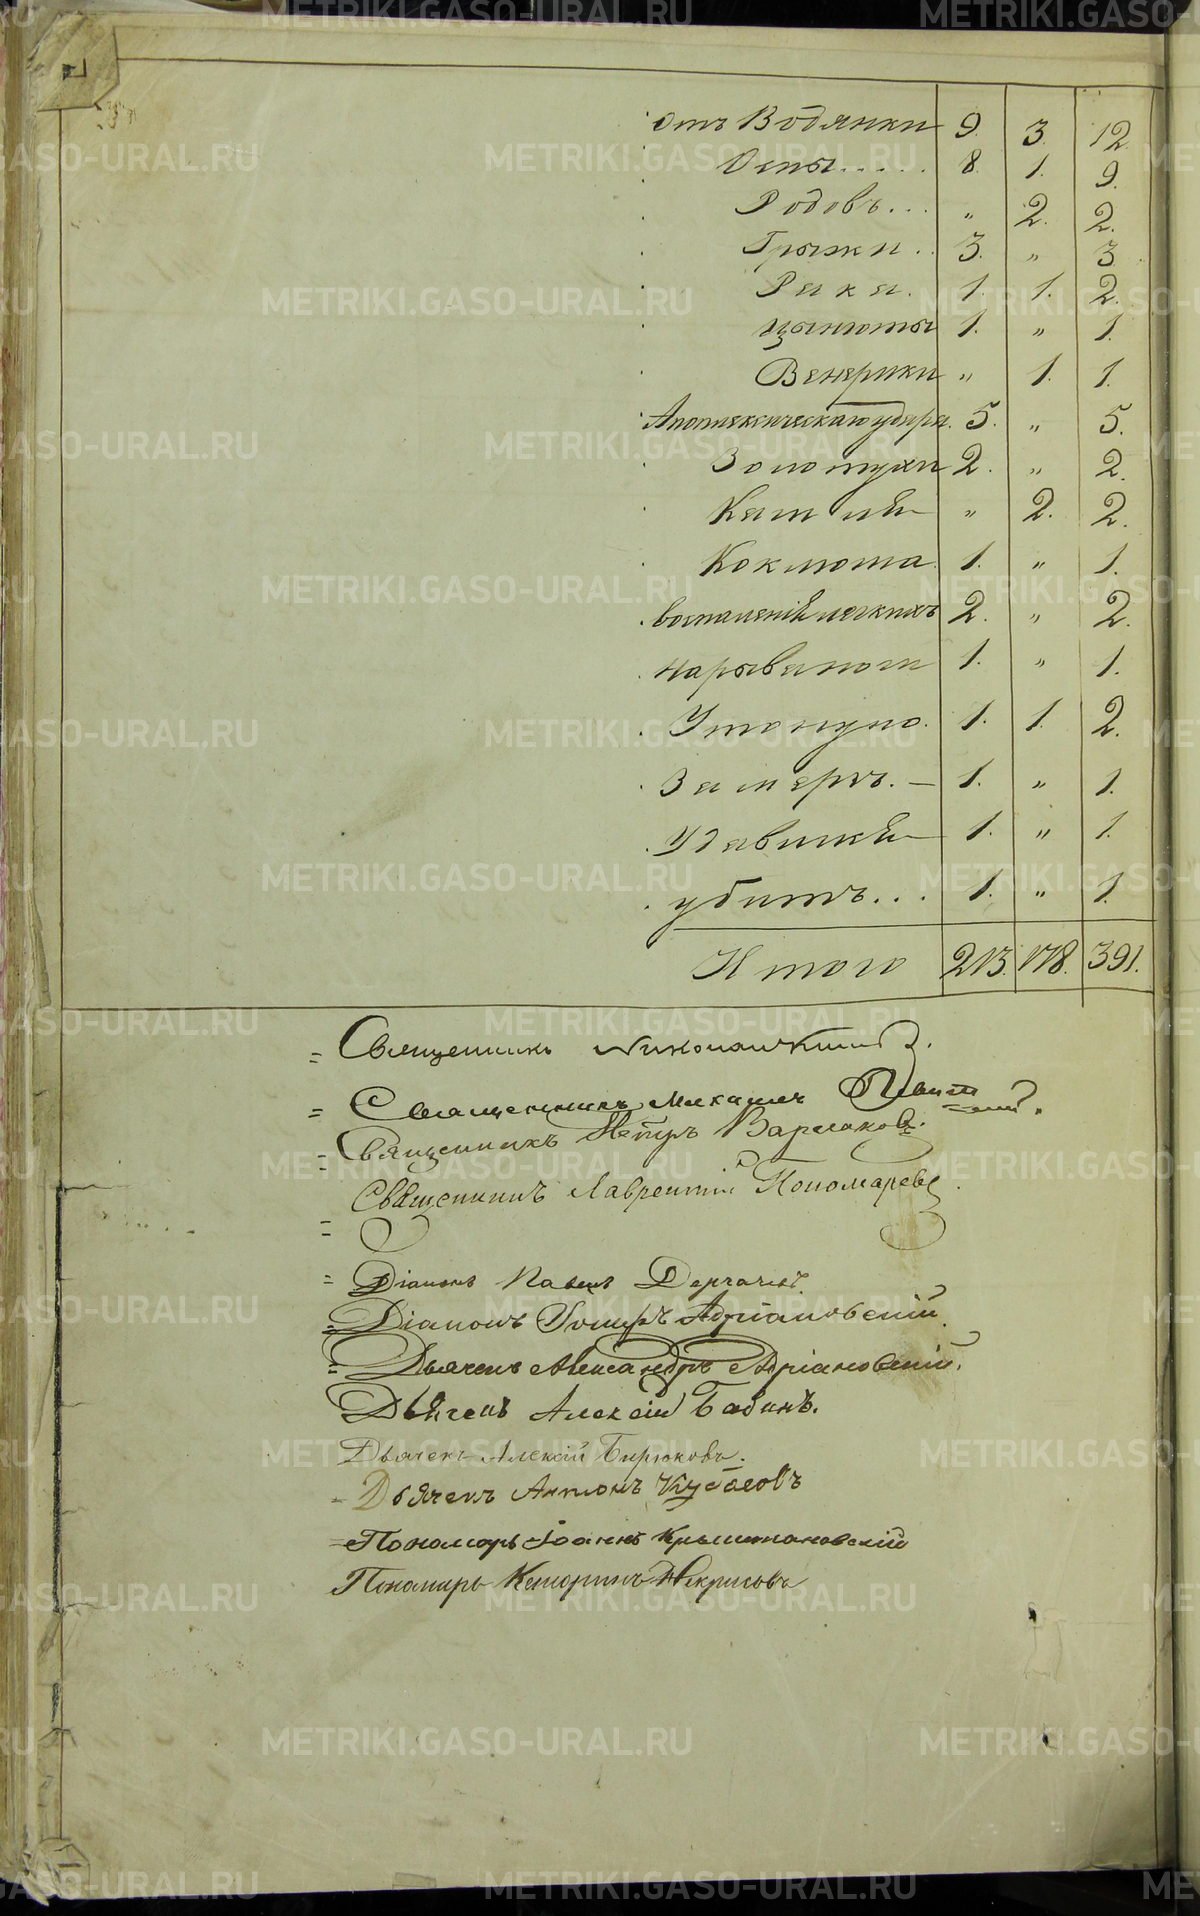 отъ Водянки 9. 3. 12.
Оспы..... 8. 1. 9.
Родовъ... „ 2. 2.
Грыжи.. 3. „ 3.
Рака. 1. 1. 2.
Цынготы 1. „ 1.
Венерики „ 1. 1.
5. „ 5.
Золотухи 2. „ 2.
Кашлѣ „ 2. 2.
Коклюша. 1. „ 1.
воспаленіѣ легкихъ 2. „ 2.
нарываном 1. „ 1.
Утонуло. 1. 1. 2.
Замерзъ. 1. „ 1.
1. „ 1.
убитъ... 1. „ 1.
Итого 213. 178. 391.
= Священникъ Николай
= Священникъ Михаилъ
= Священникъ Петръ Варлаковъ.
= Священникъ Лаврентій Пономаревъ.
= Діаконъ Павелъ Дергачевъ.
= Діаконъ Адріановскій.
= Дьячекъ Александръ Адріановскій.
Дьячекъ Алексій Бабинъ.
Дьячекъ Алексій Бирюковъ.
Дьячекъ Антонъ Кубасовъ
= Пономарь Іоаннъ Крыштановскій
Пономарь Некрасовъ
METRIKI.GASO-URAL.RU